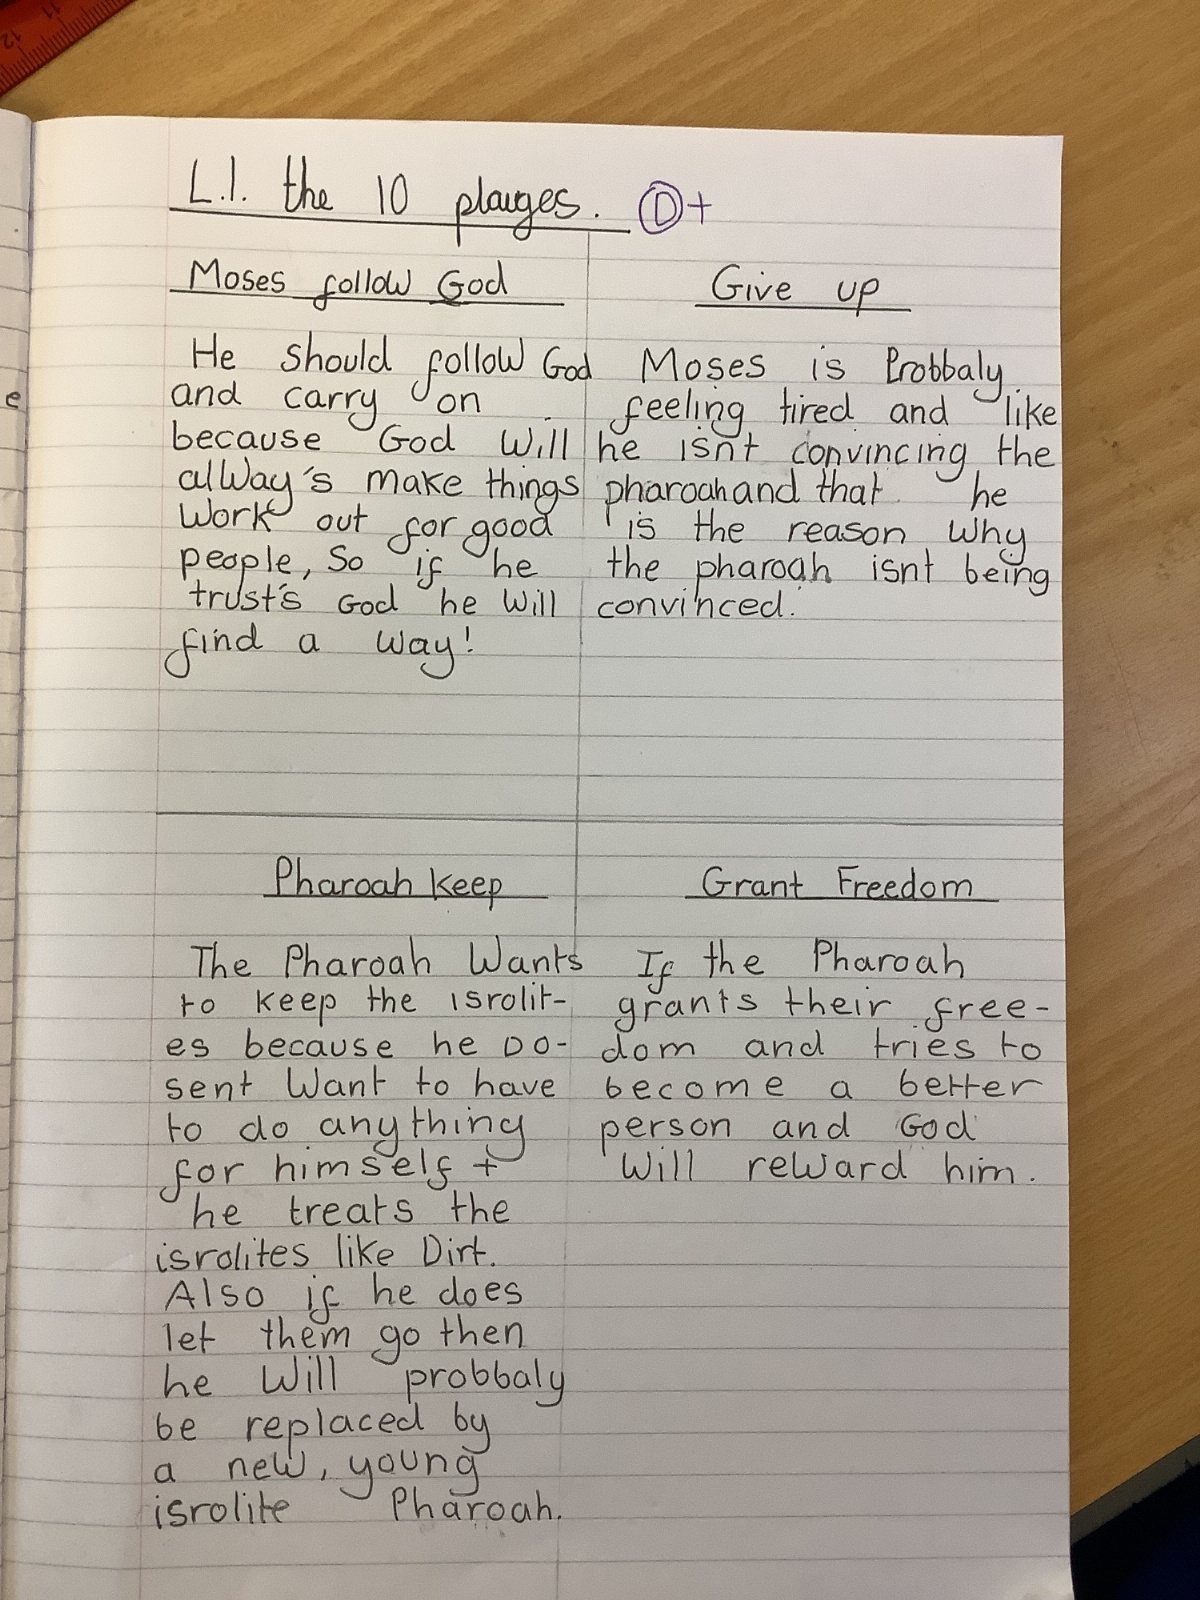 L.I. the 10 plauges. D+
Moses follow God
He should follow God
and carry on
because God will
alway's make things
work out for good
people, So if he
trust's God he will
find a way!
Give up
Moses is Probbaly
feeling tired and like
he isn't convincing the
pharoah and that he
is the reason why
the pharoah isnt being
convinced.
Pharoah keep
The Pharoah wants
to keep the isrolit-
es because he Do-
sent want to have
to do anything
for himself +
he treats the
isrolites like Dirt.
Also if he does
let them go then
he will probbaly
be replaced by
a new, young
isrolite Pharoah.
Grant Freedom
If the Pharoah
grants their free-
dom and tries to
become a better
person and God
will reward him.
11
12
e